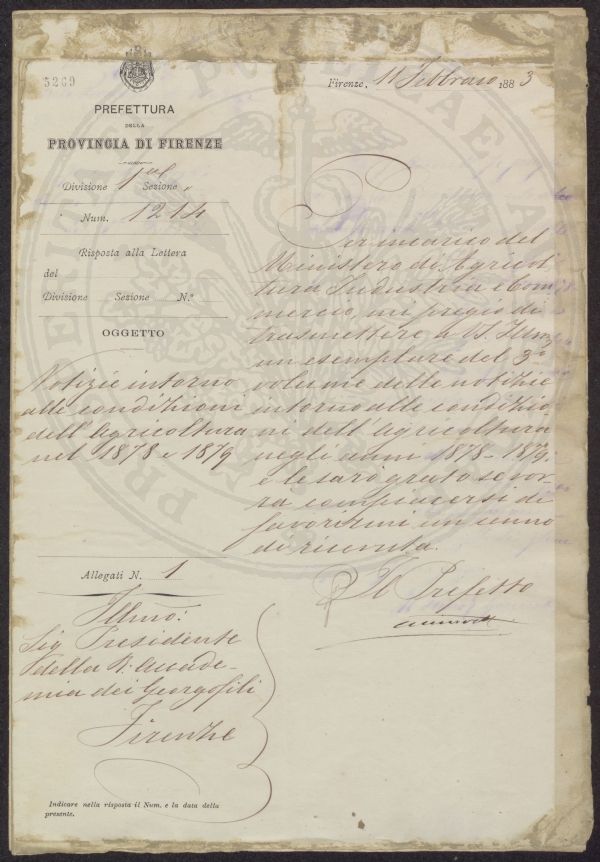 5269
PREFETTURA
DELLA
PROVINCIA DI FIRENZE
Divisione 1ª Sezione "
Num. 1214
Risposta alla Lettera
del
Divisione Sezione N.°
OGGETTO
Notizie intorno
alle condizioni
dell'Agricoltura
nel 1878 e 1879
Allegati N. 1
Illmo:
Sig Presidente
della R: Accade-
mia dei Georgofili
Firenze
Indicare nella risposta il Num. e la data della
presente.
Firenze, 11 Febbraio 1883
Per incarico del
Ministero di Agricol
tura Industria e Com
mercio, mi pregio di
trasmettere a V. S. Illma
un esemplare del 3°
volume delle notizie
intorno alle condizio
ni dell'Agricoltura
negli anni 1878-1879.
e le sarò grato se vor
rà compiacersi di
favorirmi un cenno
di ricevuta.
Il Prefetto